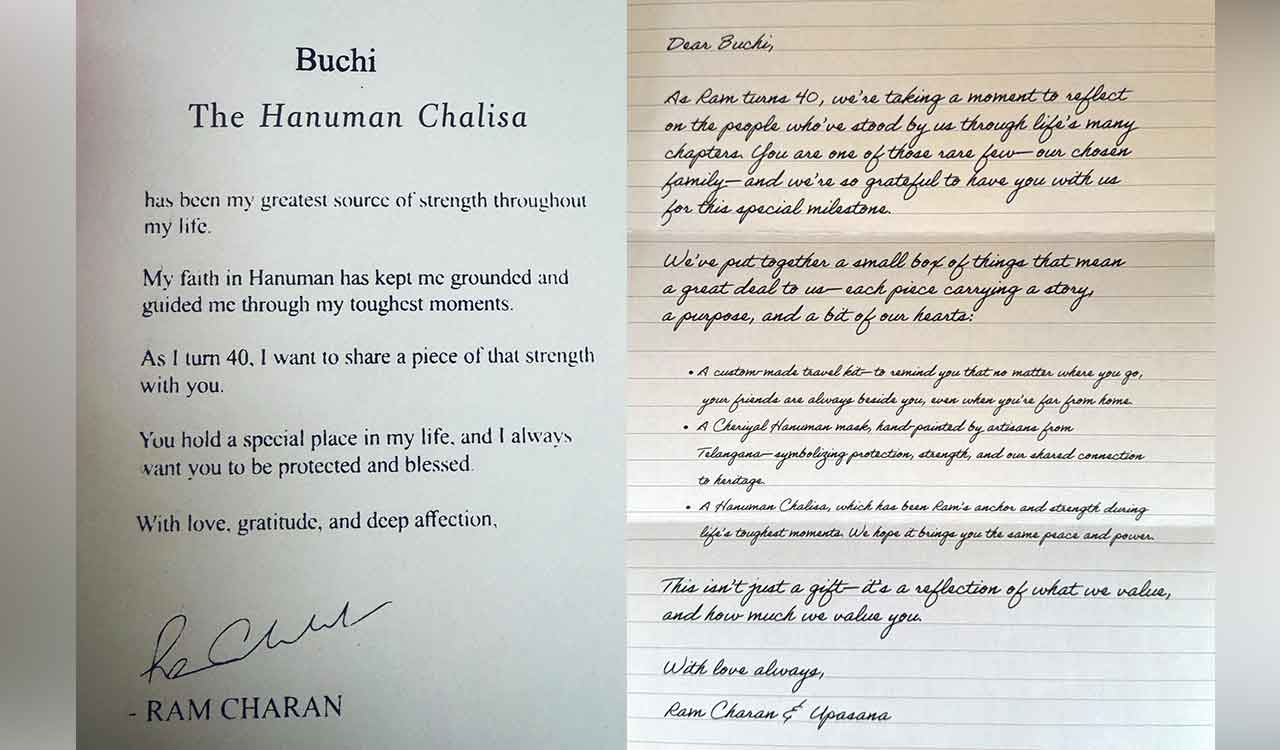 Buchi
The Hanuman Chalisa
has been my greatest source of strength throughout
my life.
My faith in Hanuman has kept me grounded and
guided me through my toughest moments.
As I turn 40, I want to share a piece of that strength
with you.
You hold a special place in my life, and I always
want you to be protected and blessed.
With love, gratitude, and deep affection,
- RAM CHARAN
Dear Buchi,
As Ram turns 40, we're taking a moment to reflect
on the people who've stood by us through life's many
chapters. You are one of those rare few—our chosen
family—and we're so grateful to have you with us
for this special milestone.
We've put together a small box of things that mean
a great deal to us—each piece carrying a story,
a purpose, and a bit of our hearts:
• A custom-made travel kit—to remind you that no matter where you go,
your friends are always beside you, even when you're far from home.
• A Cheriyal Hanuman mask, hand-painted by artisans from
Telangana—symbolizing protection, strength, and our shared connection
to heritage.
• A Hanuman Chalisa, which has been Ram's anchor and strength during
life's toughest moments. We hope it brings you the same peace and power.
This isn't just a gift—it's a reflection of what we value,
and how much we value you.
With love always,
Ram Charan & Upasana